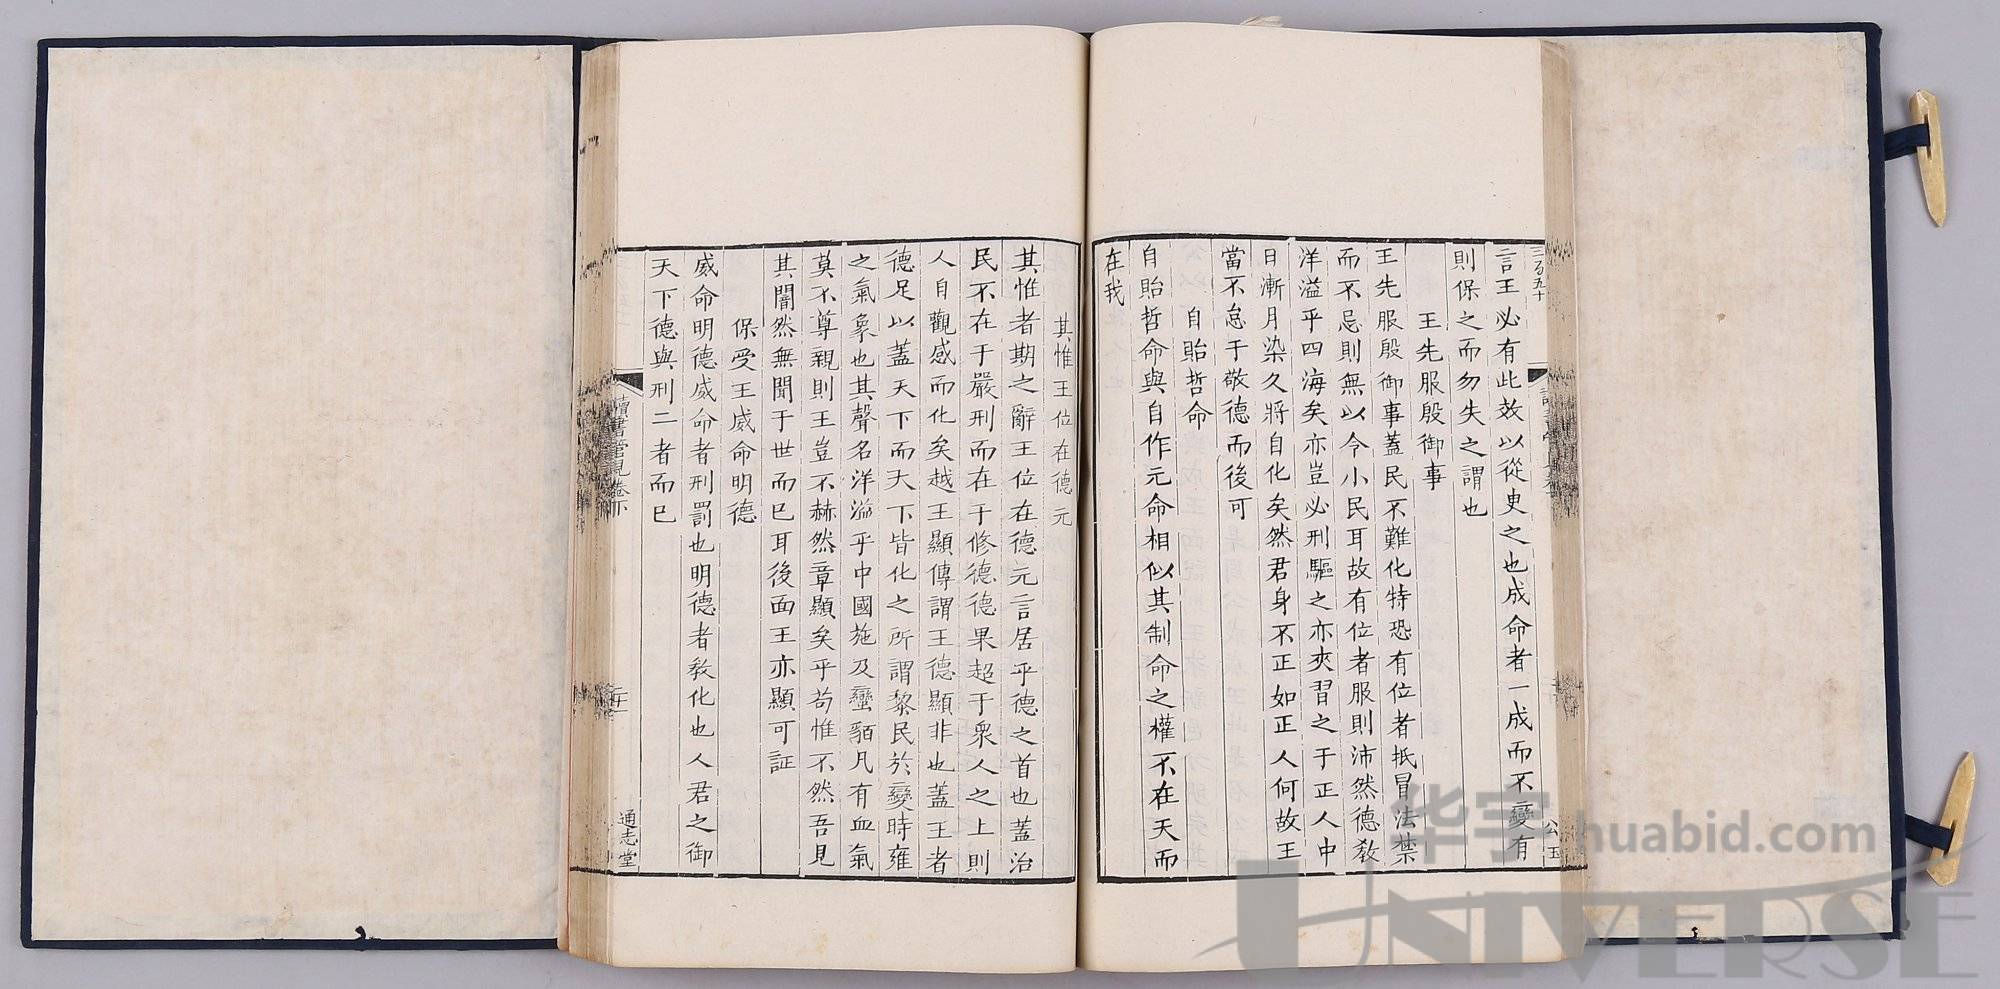 言王必有此效以從吏之也成命者一成而不變有
則保之而勿失之謂也
王先服殷御事
王先服殷御事蓋民不難化特恐有位者抵冒法禁
而不忌則無以令小民耳故有位者服則沛然德教
洋溢乎四海矣亦豈必刑驅之亦夾習之于正人中
日漸月染久將自化矣然君身不正如正人何故王
當不怠于敬德而後可
自貽哲命
自貽哲命與自作元命相似其制命之權不在天而
在我
其惟王位在德元
其惟者期之辭王位在德元言居乎德之首也蓋治
民不在于嚴刑而在于修德德果超于衆人之上則
人自觀感而化矣越王顯傳謂王德顯非也蓋王者
德足以蓋天下而天下皆化之所謂黎民於變時雍
之氣象也其聲名洋溢乎中國施及蠻貊凡有血氣
莫不尊親則王豈不赫然章顯矣乎苟惟不然吾見
其闇然無聞于世而已耳後面王亦顯可証
保受王威命明德
威命明德威命者刑罰也明德者教化也人君之御
天下德與刑二者而已
讀書管見卷下
二十一
通志堂
三百五十
公玉
华宇huabid.com
UNIVERSE